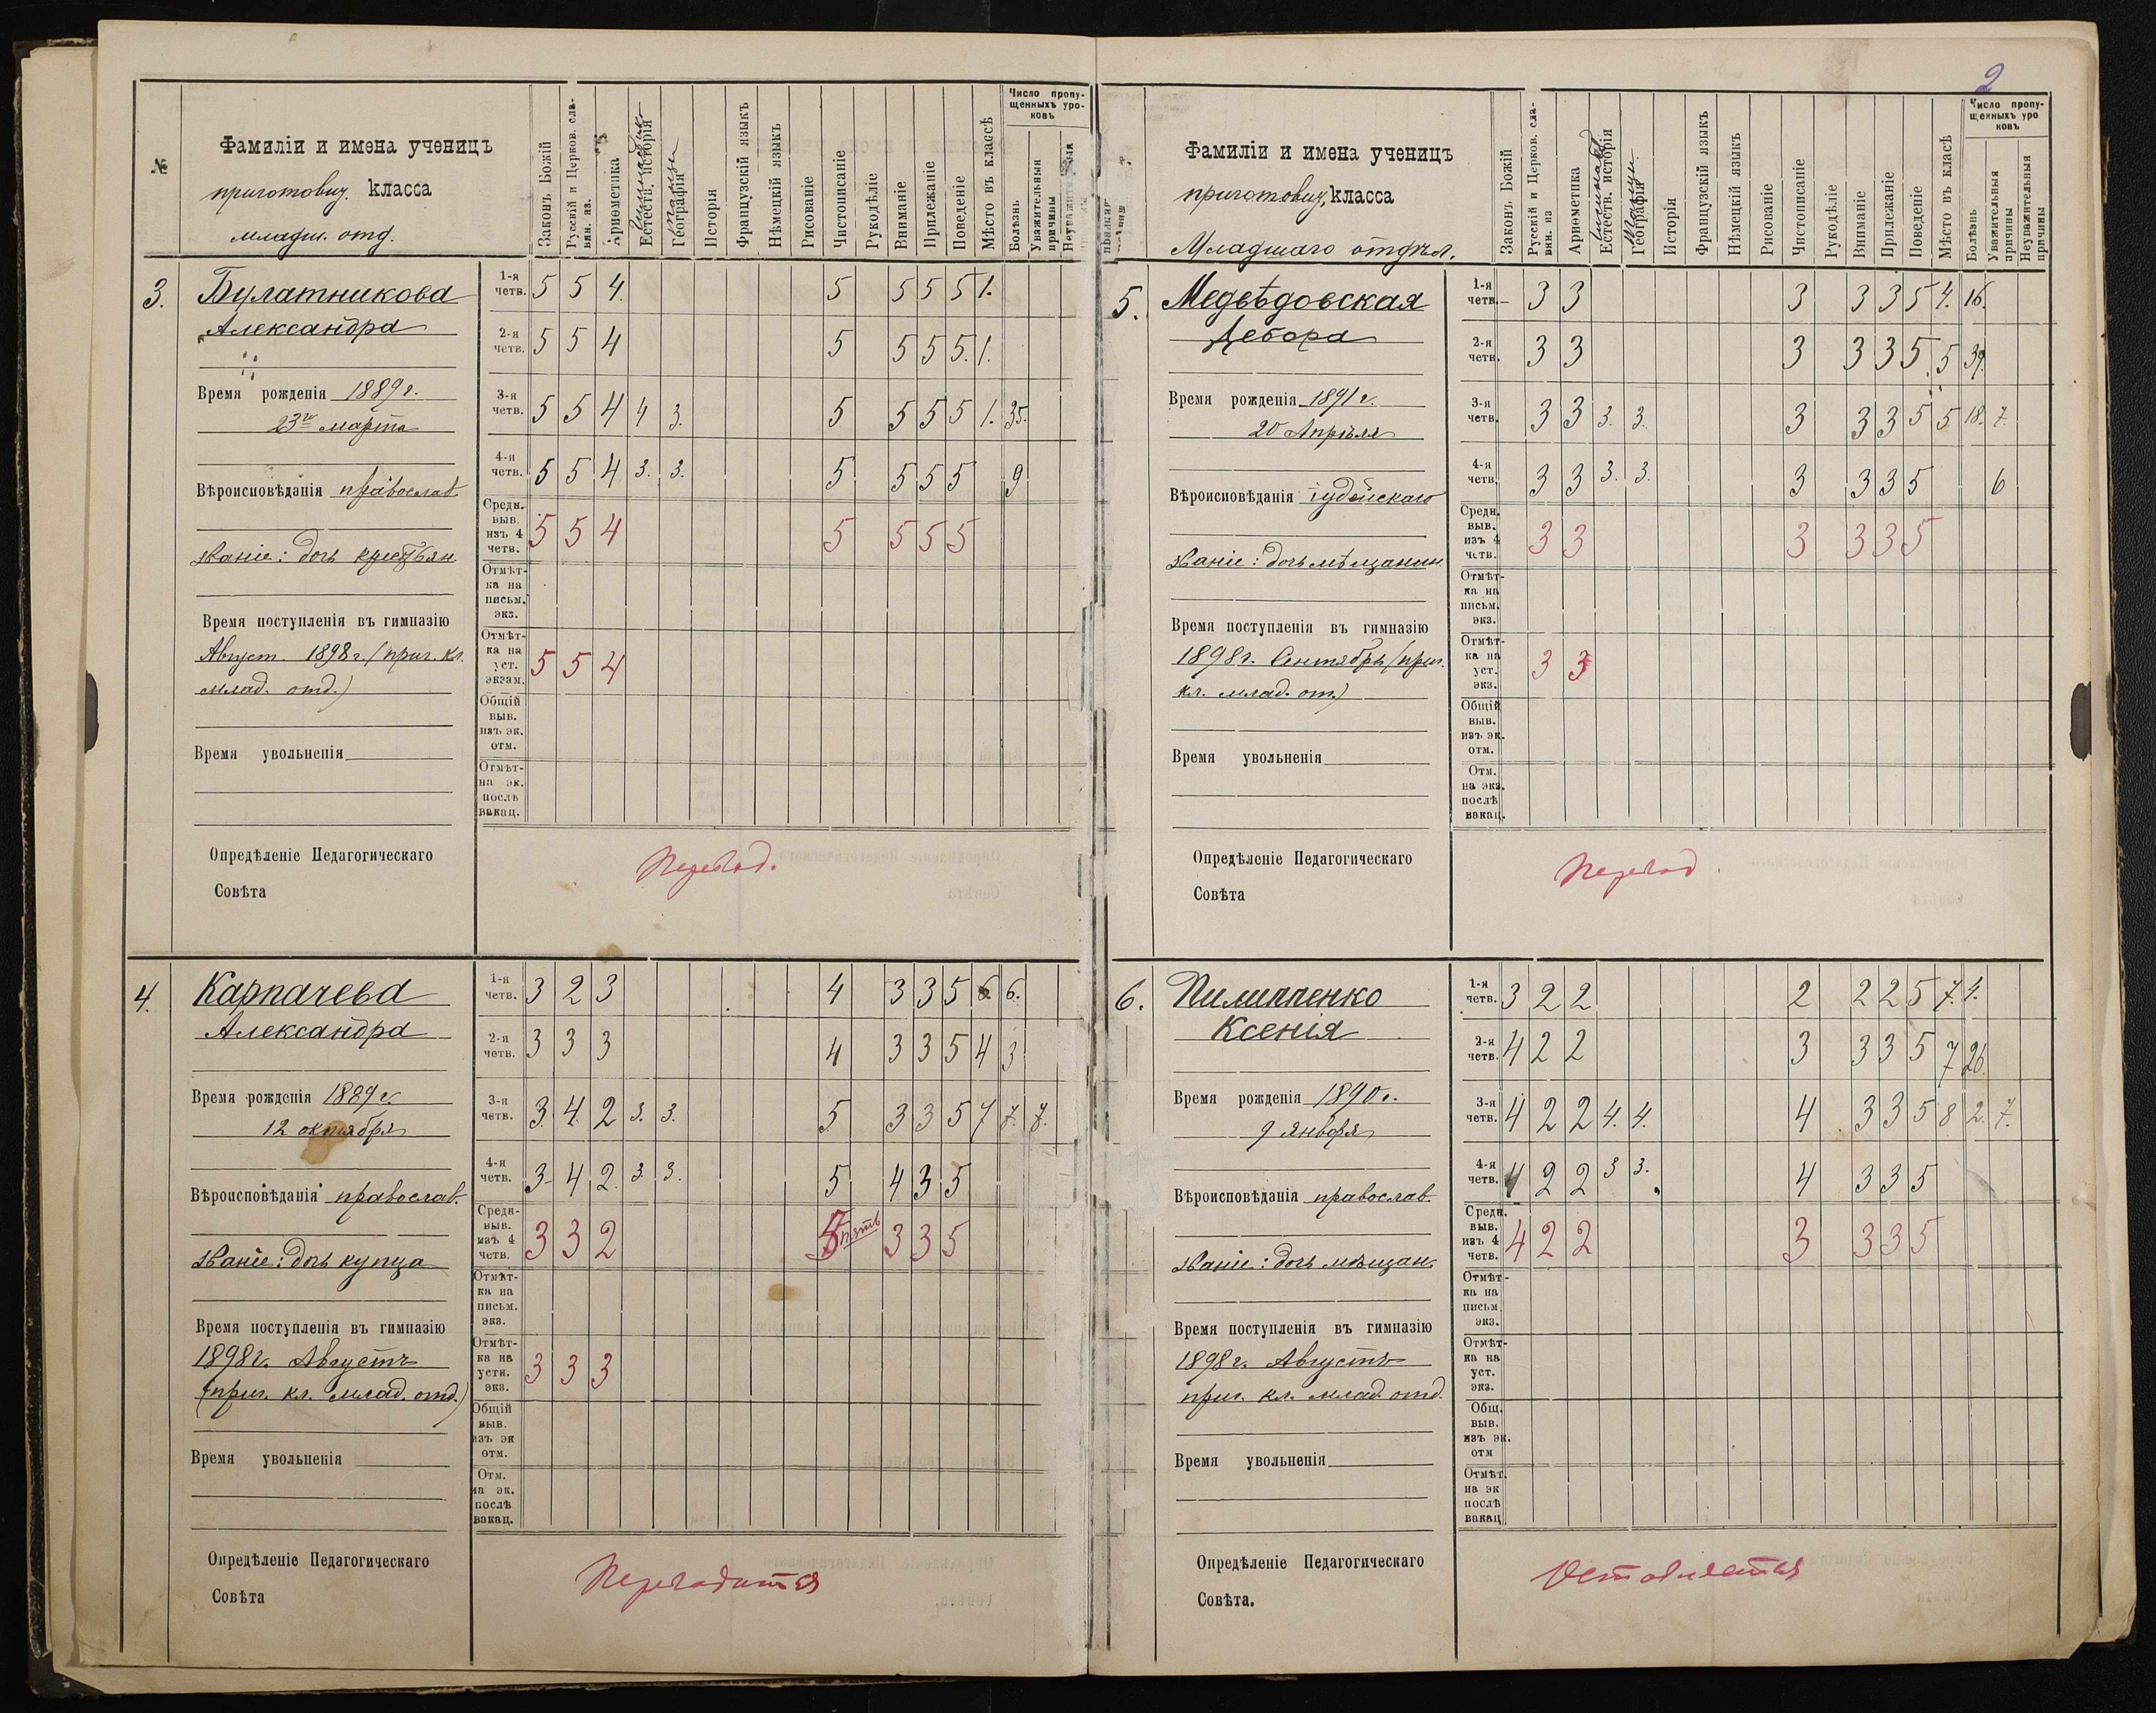 №
Фамиліи и имена ученицъ
приготовит. класса
младш. отд.
Законъ Божій
Русскій и Церков. сла-
вян. яз.
Ариѳметика
Гимнастика
Естеств. исторія
танцы
Географія
Исторія
Французскій языкъ
Нѣмецкій языкъ
Рисованіе
Чистописаніе
Рукодѣліе
Вниманіе
Прилежаніе
Поведеніе
Мѣсто въ классѣ
Число пропу-
щенныхъ уро-
ковъ
Болѣзнь
Уважительныя
причины
3. Булатникова
Александра
Время рожденія 1889 г.
23го марта
Вѣроисповѣданія православ.
Званіе: дочь крестьян.
Время поступленія въ гимназію
Август. 1898 г. (приг. кл.
млад. отд.)
Время увольненія
1-я четв. 5 5 4. 5 5 5 5 1.
2-я четв. 5 5 4 5 5 5 5. 1.
3-я четв. 5 5 4 4 3. 5 5 5 5 1. 35.
4-я четв. 5 5 4 3. 3. 5 5 5 5 9
Средн. выв. изъ 4 четв. 5 5 4 5 5 5 5
Отмѣт-
ка на
письм.
экз.
Отмѣт-ка на уст. экзам. 5 5 4
Общій
выв.
изъ эк.
отм.
Отмѣт-
на эк.
послѣ
вакац.
Опредѣленіе Педагогическаго
Совѣта
Перевод.
4. Карпачева
Александра
Время рожденія 1889 г.
12 октября
Вѣроисповѣданія православ.
Званіе: дочь купца
Время поступленія въ гимназію
1898 г. Августъ
(приг. кл. млад. отд.)
Время увольненія
1-я четв. 3 2 3 4 3 3 5 6. 6.
2-я четв. 3 3 3 4 3 3 5 4 3
3-я четв. 3. 4. 2 3. 3. 5. 3 3 5 7 7. 7.
4-я четв. 3 4 2. 3. 3. 5 4 3 5
Средн- выв. изъ 4 четв. 3 3 2 5 пять 3 3 5
Отмѣт-
ка на
письм.
экз.
Отмѣт-ка на устн. экз. 3 3 3
Общій
выв.
изъ эк
отм.
Отм.
на эк.
послѣ
вакац.
Опредѣленіе Педагогическаго
Совѣта
Переводится
2
Фамиліи и имена ученицъ
приготовит. класса
Младшаго отдѣл.
Законъ Божій
Русскій и Церков. сла-
вян. яз
Ариѳметика
Естеств. исторія
танцы
Географія
Исторія
Французскій языкъ
Нѣмецкій языкъ
Рисованіе
Чистописаніе
Рукодѣліе
Вниманіе
Прилежаніе
Поведеніе
Мѣсто въ класѣ
Число пропу-
щенныхъ уро
ковъ
Болѣзнь
Уважительныя
причины
Неуважительныя
причины
5. Медвѣдовская
Дебора
Время рожденія 1891 г.
20 Апрѣля
Вѣроисповѣданія іудейскаго
Званіе: дочь мѣщанин.
Время поступленія въ гимназію
1898 г. Сентябрь (приг.
кл. млад. от.)
Время увольненія
1-я четв. – 3 3 3 3 3 5 4. 16.
2-я четв. 3 3 3 3 3 5 5 39.
3-я четв. 3 3 3. 3. 3 3 3 5 5 18. 7.
4-я четв. 3 3 3. 3. 3 3 3 5 6
Средн. выв. изъ 4 четв. 3 3 3 3 3 5
Отмѣт-
ка на
письм.
экз.
Отмѣт-ка на уст. экз. 3 3
Общій
выв.
изъ эк.
отм.
Отм.
на экз.
послѣ
вакац.
Опредѣленіе Педагогическаго
Совѣта
Перевод.
6. Пилиппенко
Ксенія
Время рожденія 1890 г.
9 января
Вѣроисповѣданія православ.
Званіе: дочь мѣщан.
Время поступленія въ гимназію
1898 г. Августъ
приг. кл. млад. отд.
Время увольненія
1-я четв. 3 2 2 2 2 2 5 7. 4.
2-я четв. 4 2 2 3 3 3 5 7 26.
3-я четв. 4 2 2 4. 4. 4 3 3 5 8 2. 7.
4-я четв. 4 2 2 3 3. 4 3 3 5
Средн. выв. изъ 4 четв. 4 2 2 3 3 3 5
Отмѣт-
ка на
письм.
экз.
Отмѣт-
ка на
уст.
экз.
Общ.
выв.
изъ эк.
отм
Отмѣт.
на эк
послѣ
вакац
Опредѣленіе Педагогическаго
Совѣта.
Оставляется